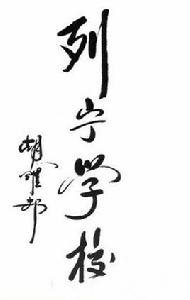 列宁学校
胡耀邦